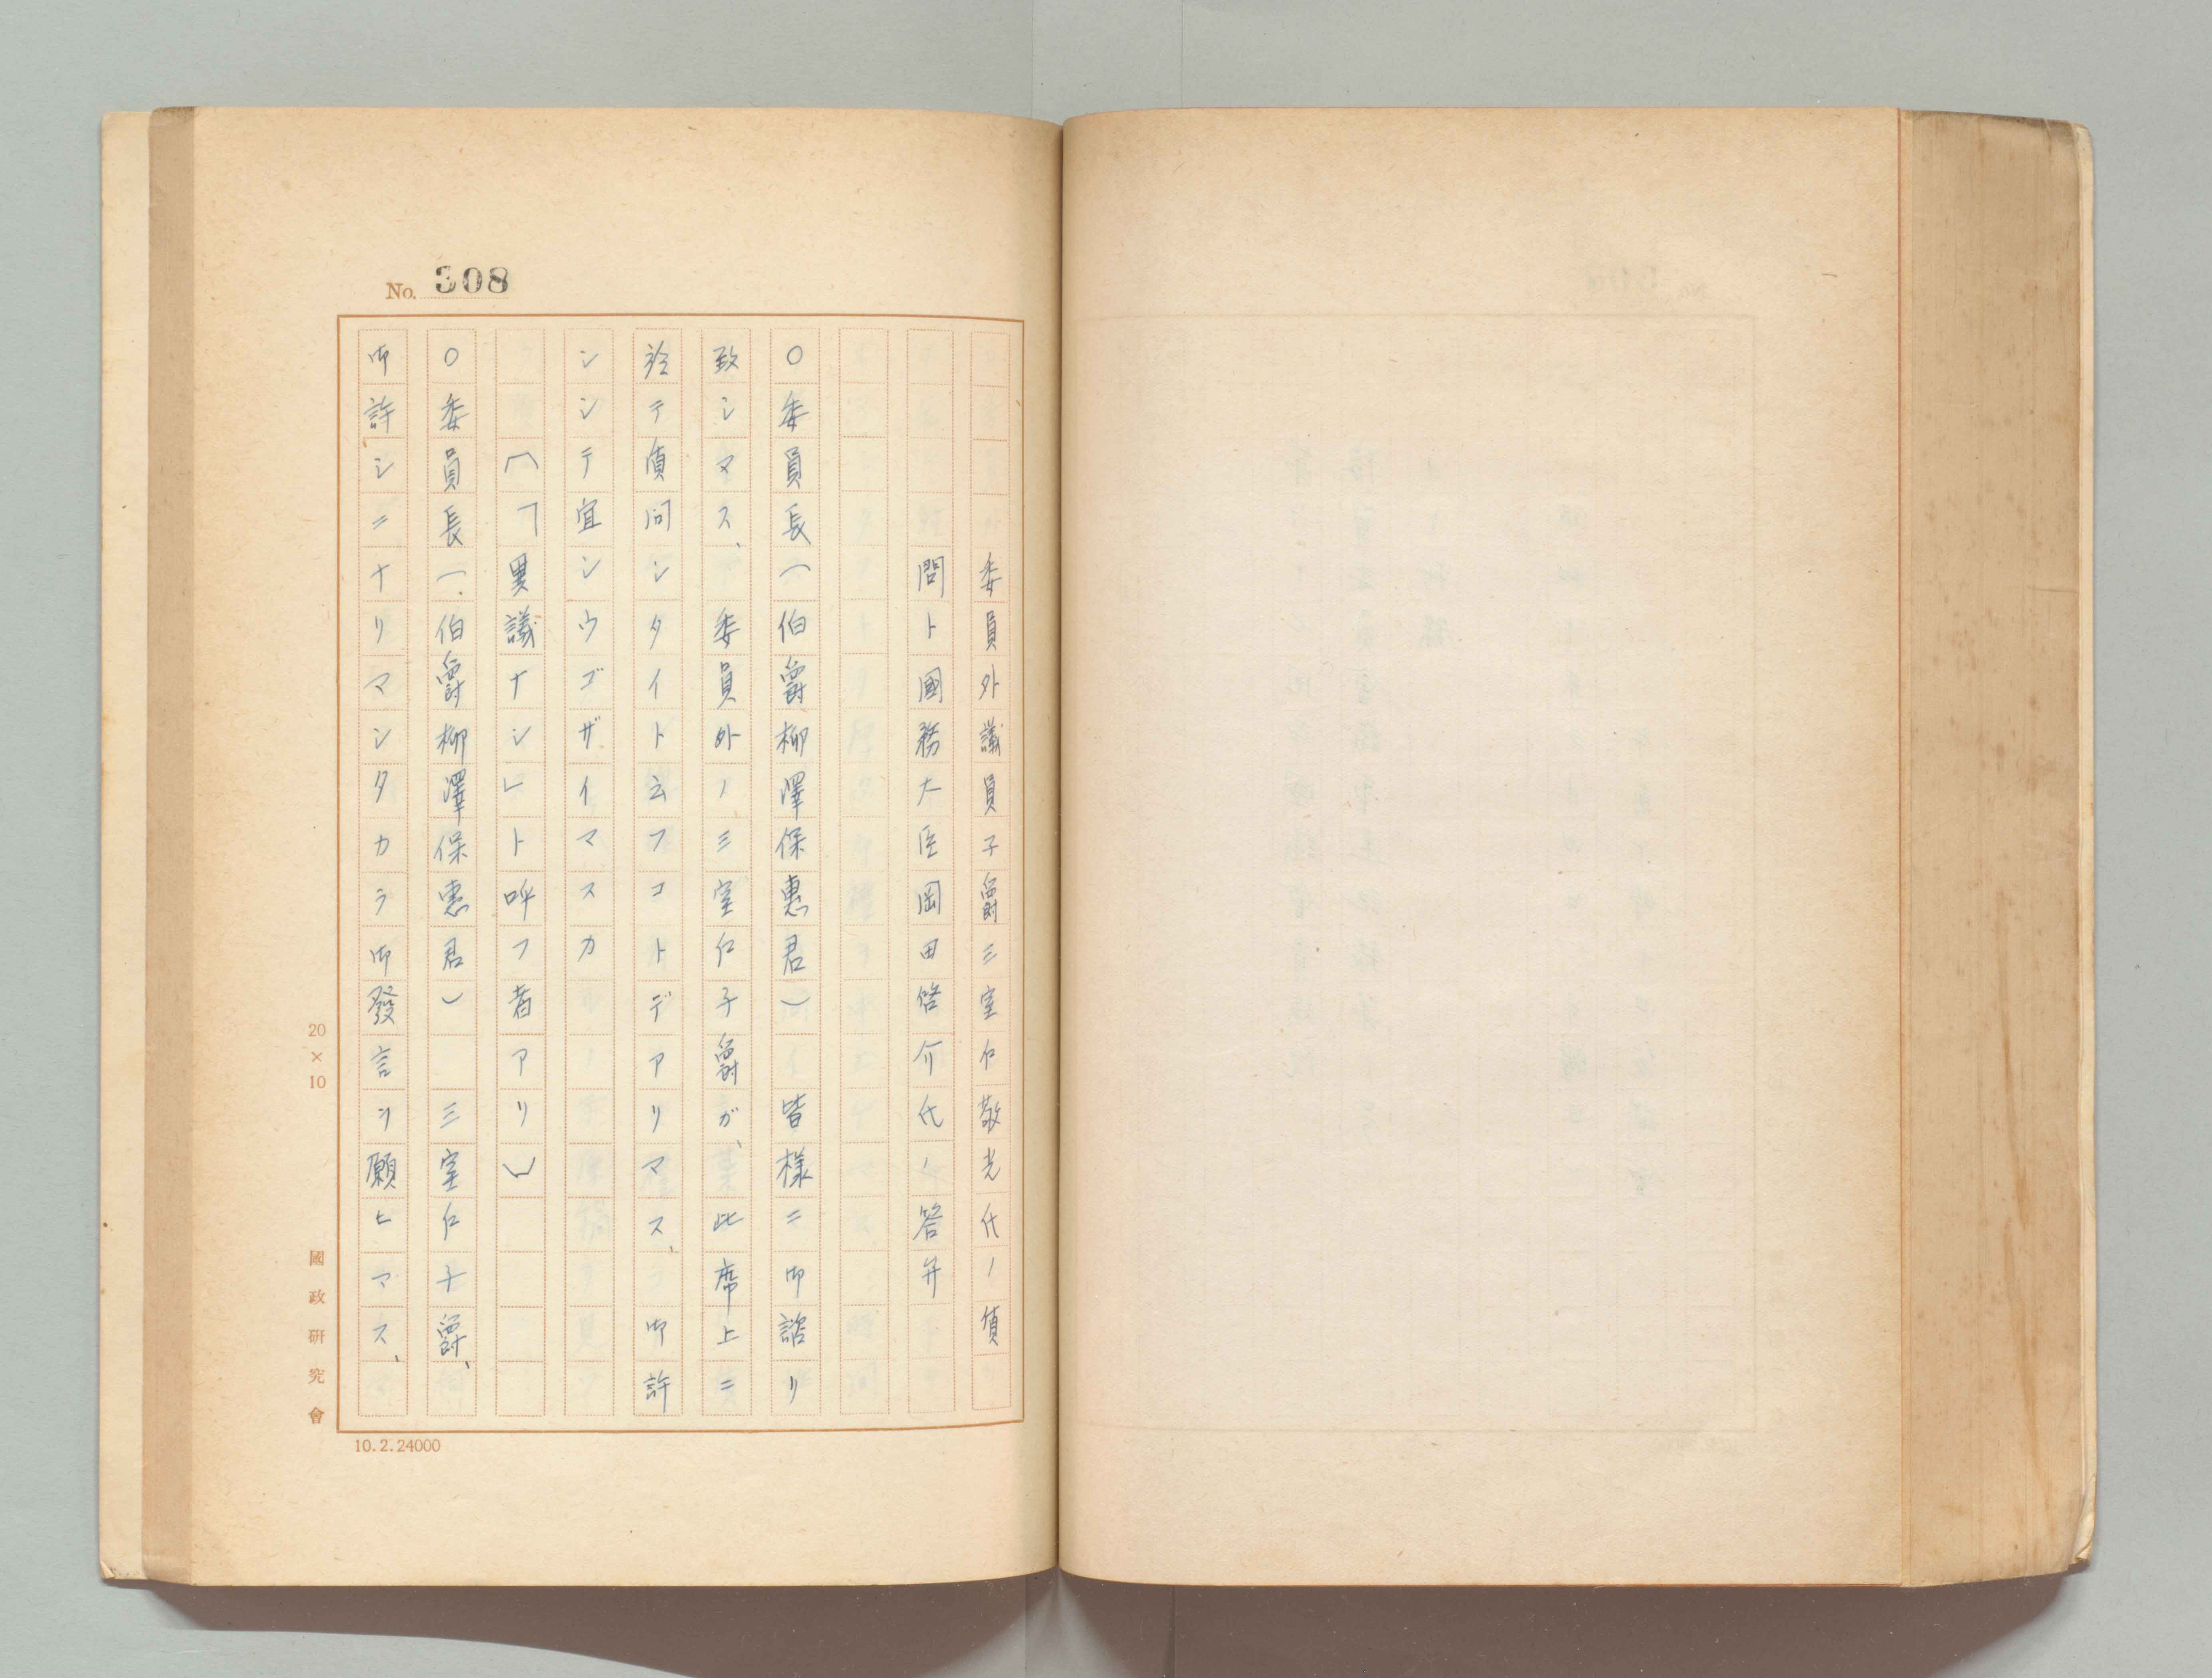 No. 308
委員外議員子爵三室戸敬光代ノ質
問ト國務大臣岡田啓介代ノ答弁
○委員長(伯爵柳澤保惠君) 皆樣ニ御諮リ
致シマス、 委員外ノ三室戸子爵ガ、此席上ニ
於テ質問シタイト云フコトデアリマス、 御許
シシテ宜シウゴザイマスカ
(「異議ナシ」ト呼フ者アリ)
○委員長(伯爵柳澤保惠君) 三室戸子爵、
御許シニナリマシタカラ御發言ヲ願ヒマス、
20×10
國政研究會
10.2.24000